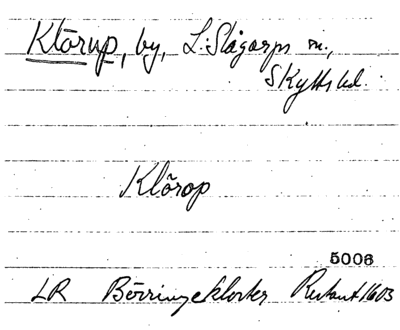 Klörup, by, L. Slågarps sn.,
Skytts hd.
Klörop
5006
LR Börringekloster Restant 1603